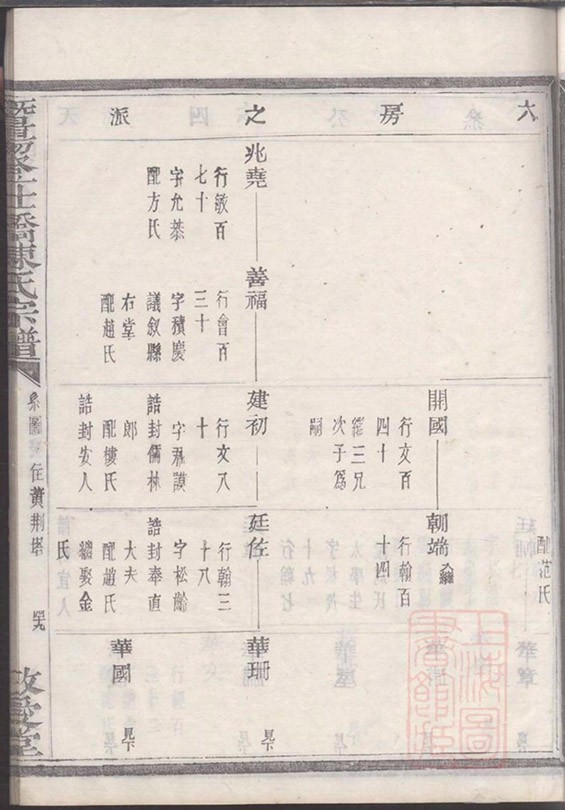 六房之派
配范氏
開國
行文百
四十
繼三兄
次子爲
嗣
朝端
入繼
行翰百
十四
兆堯
行敏百
七十
字允恭
配方氏
善福
行會百
三十
字積慶
議敘縣
右堂
配趙氏
建初
行文八
十
誥封儒林
郎
配樓氏
誥封安人
廷佐
行翰三
十八
字松齡
誥封奉直
大夫
配趙氏
繼娶金
氏
華珊
見下
華國
見下
暨陽
橋陳氏宗譜
系圖
住黃荆塔